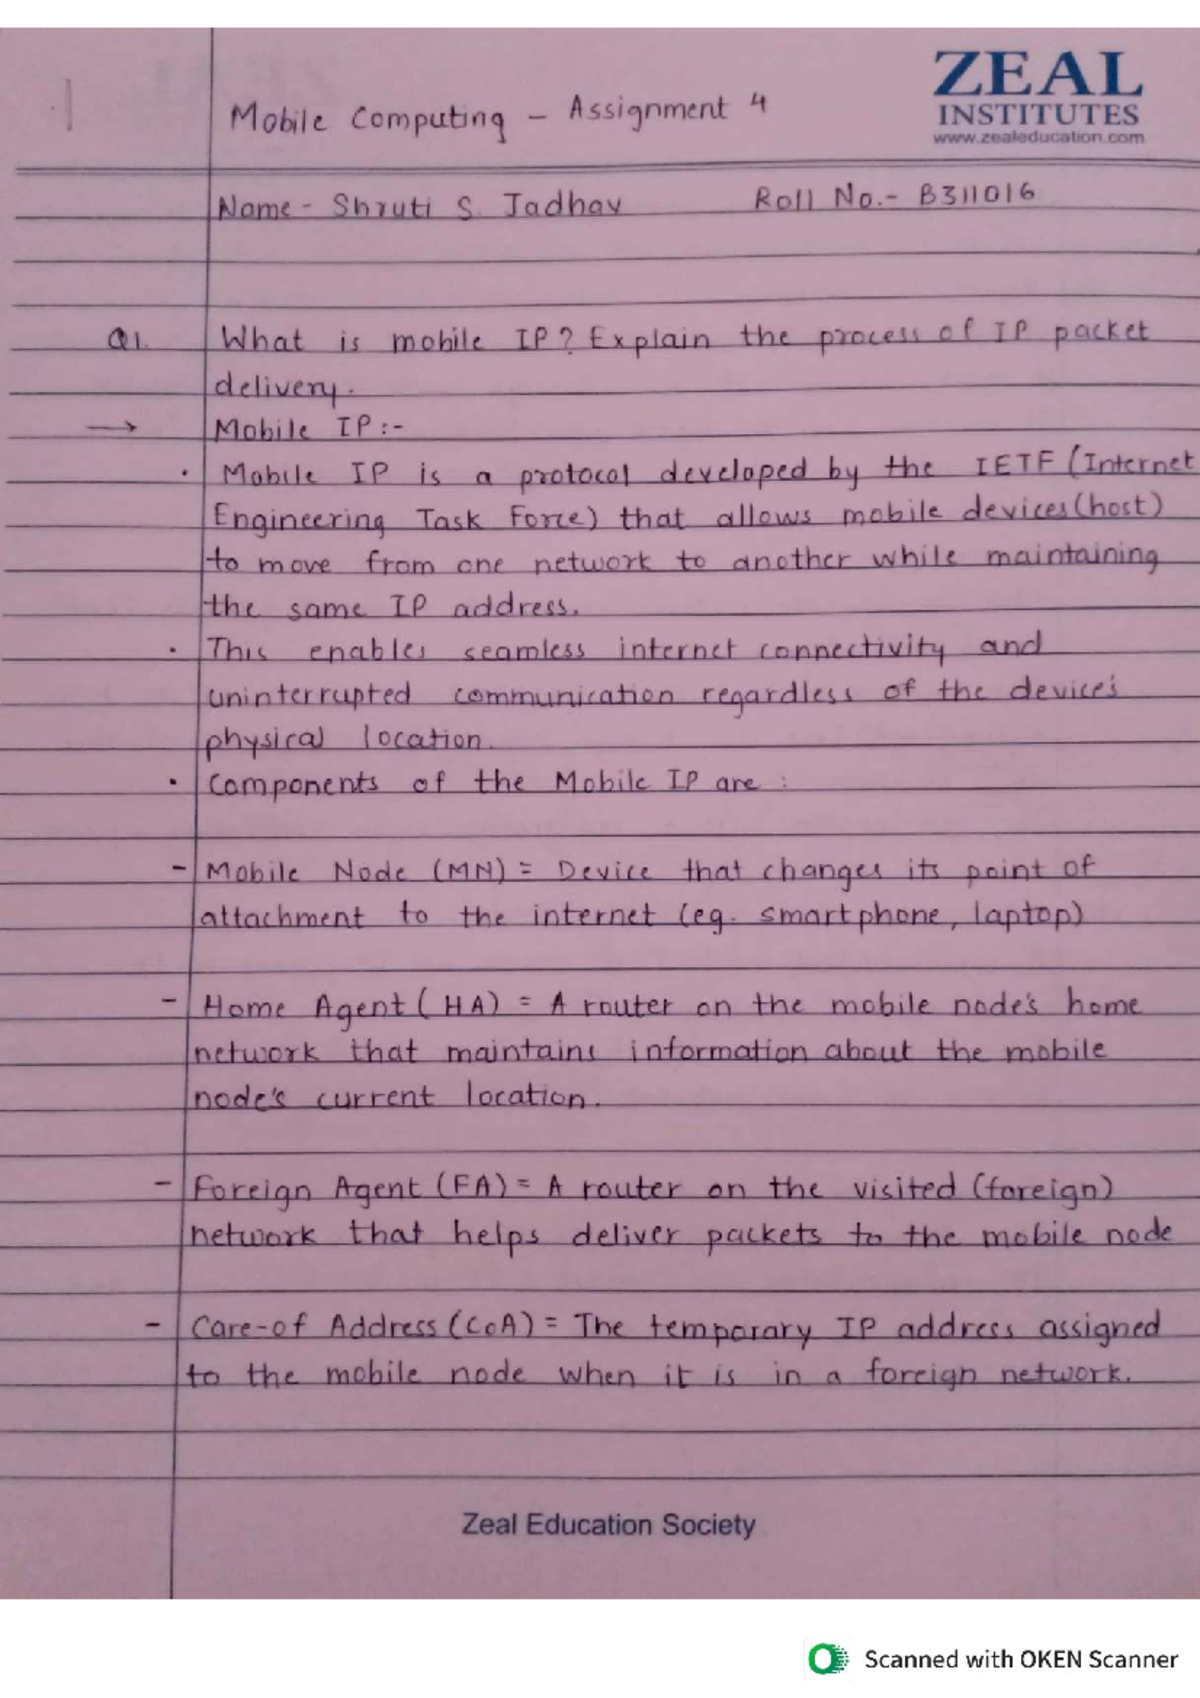 ZEAL
INSTITUTES
www.zealeducation.com
Mobile Computing - Assignment 4
Name - Shruti S. Jadhav Roll No.- B311016
Q1. What is mobile IP? Explain the process of IP packet
delivery.
→ Mobile IP:-
· Mobile IP is a protocol developed by the IETF (Internet
Engineering Task Force) that allows mobile devices (host)
to move from one network to another while maintaining
the same IP address.
· This enables seamless internet connectivity and
uninterrupted communication regardless of the device's
physical location.
· Components of the Mobile IP are :
- Mobile Node (MN) = Device that changes its point of
attachment to the internet (eg. smartphone, laptop)
- Home Agent (HA) = A router on the mobile node's home
network that maintains information about the mobile
node's current location.
- Foreign Agent (FA) = A router on the visited (foreign)
network that helps deliver packets to the mobile node
- Care-of Address (CoA) = The temporary IP address assigned
to the mobile node when it is in a foreign network.
Zeal Education Society
Scanned with OKEN Scanner